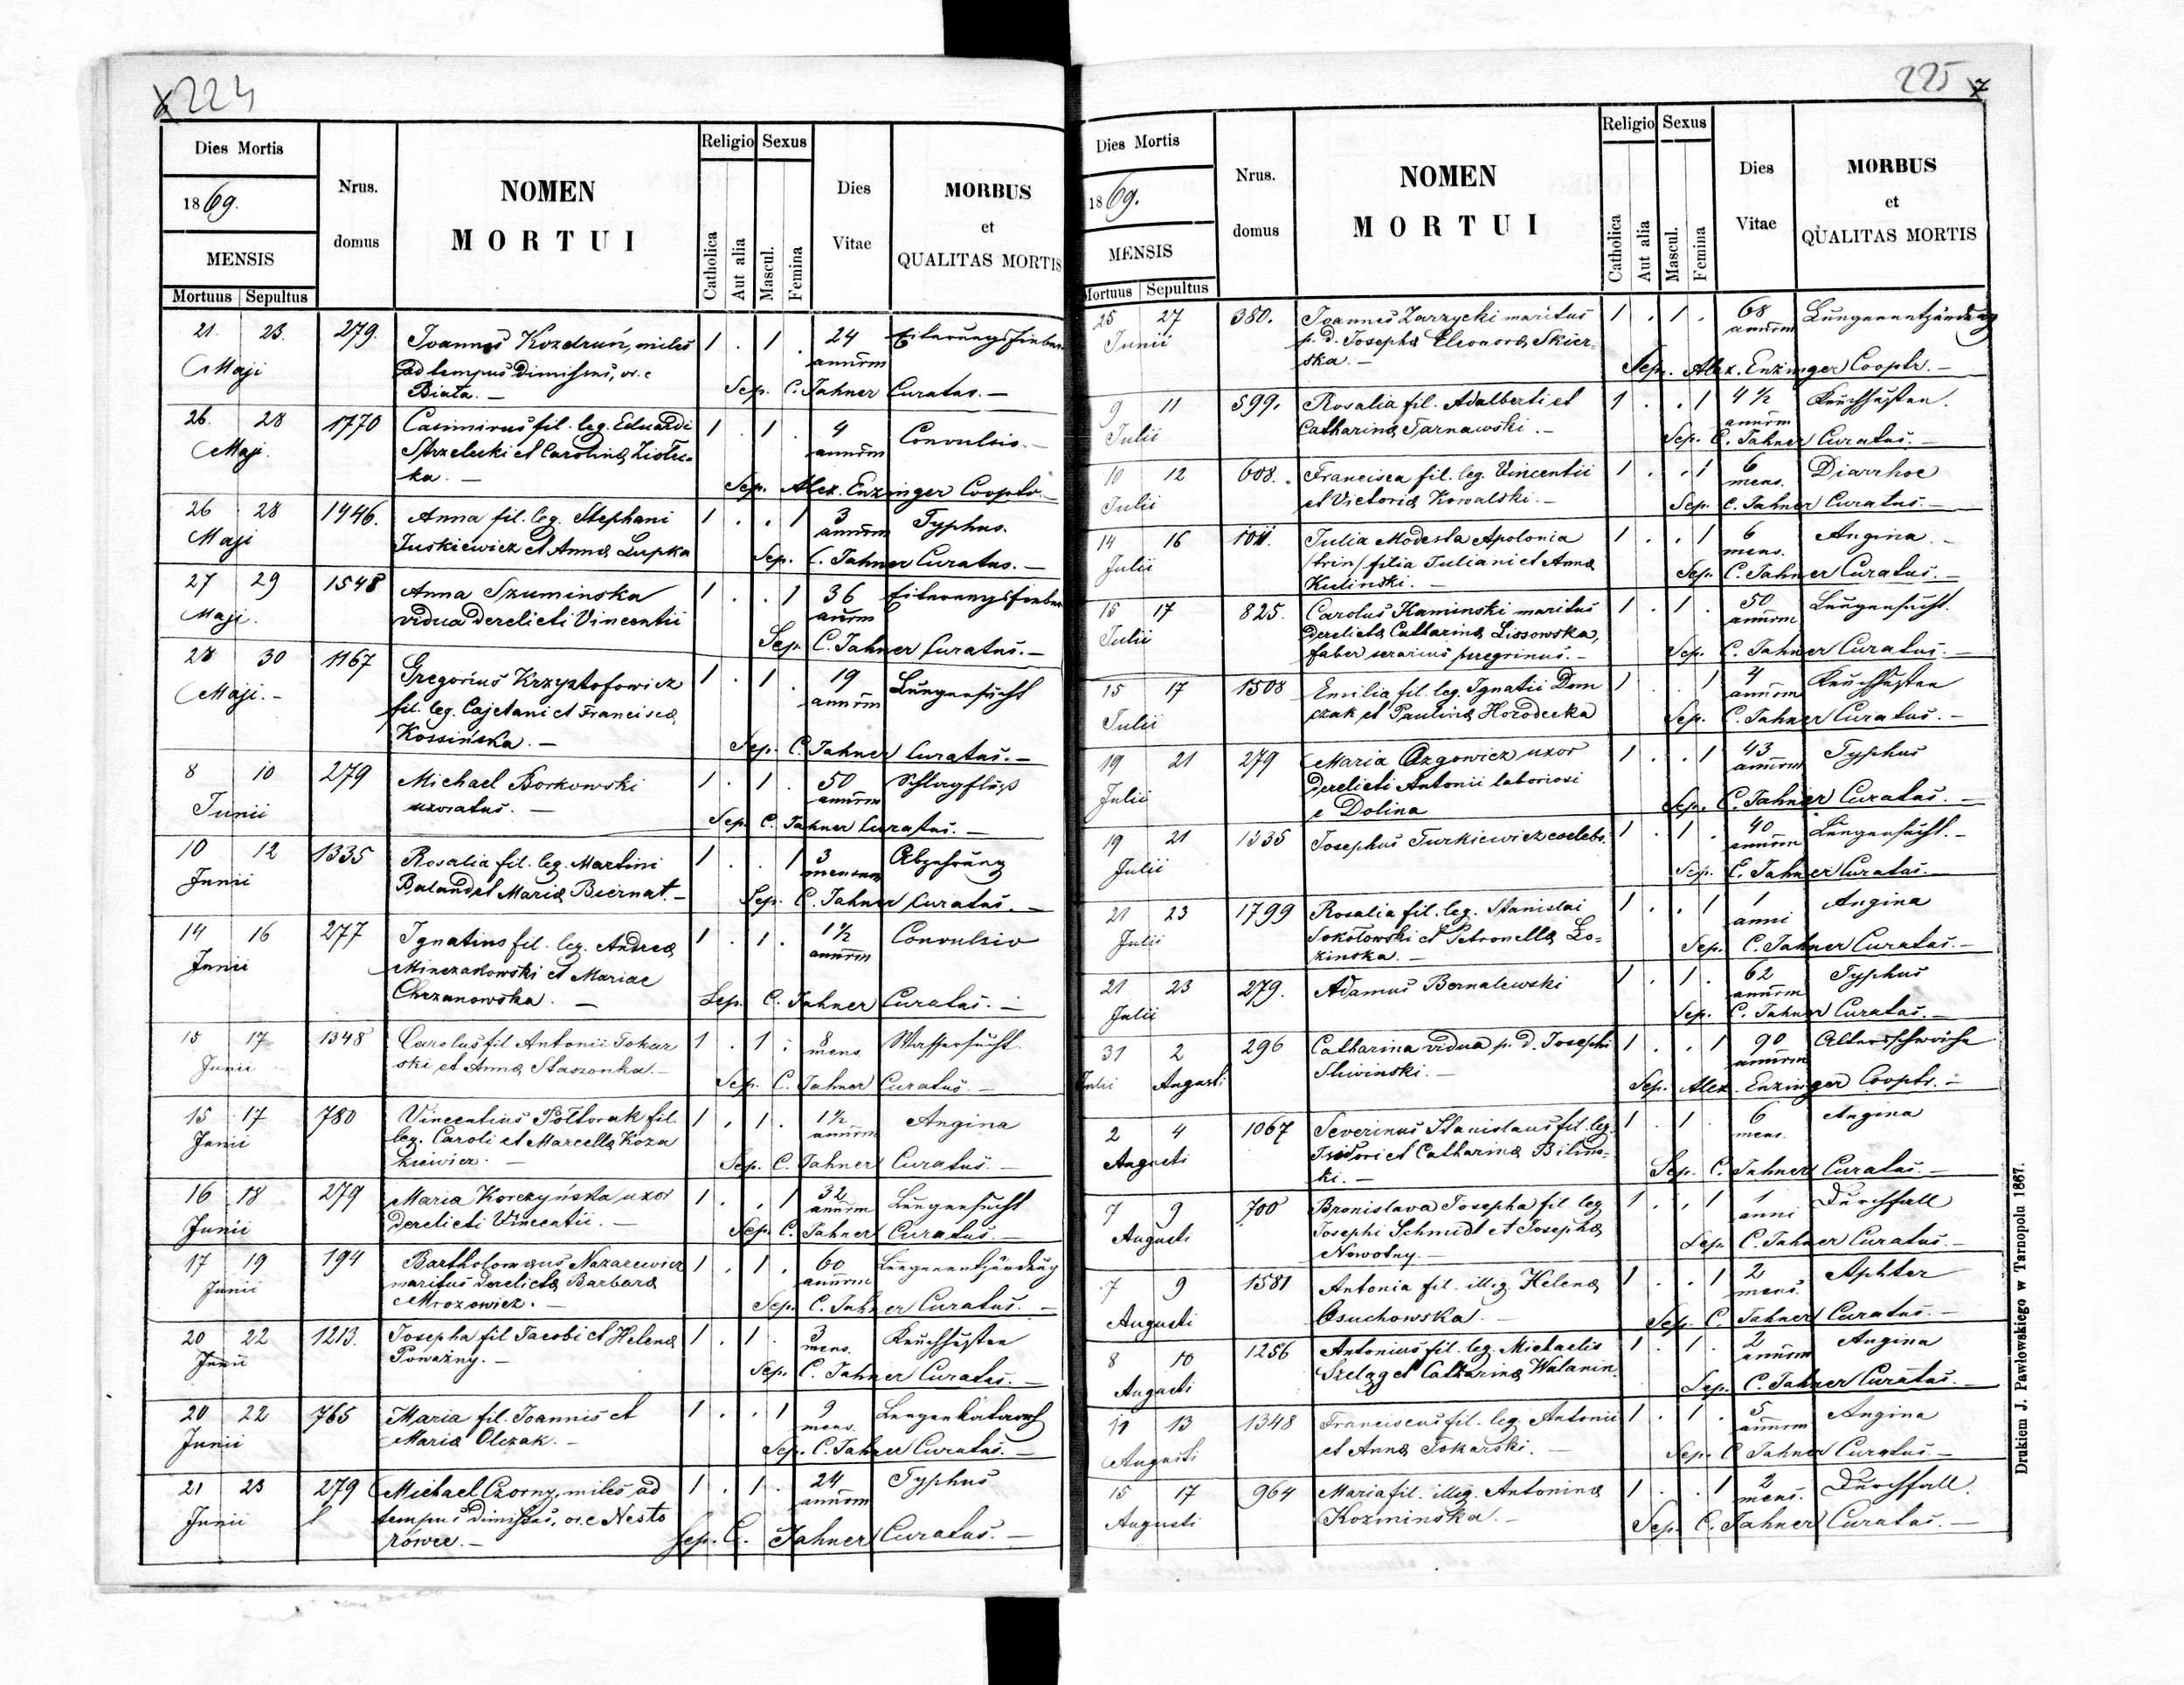 224
Dies Mortis
Nrus. domus
NOMEN MORTUI
Religio Sexus
Dies Vitae
MORBUS et QUALITAS MORTIS
1869.
MENSIS
Mortuus Sepultus
Catholica Aut alia Mascul. Femina
21. 23. 279. Joannes Kozdruń, miles 1 . 1 . 24 Eiterungsfieber
Maji ad tempus dimissus, or. e annorum
Biała. — Sep. C. Jahner Curatus. —
26. 28 1770 Casimirus fil. leg. Eduardi 1 . 1 . 4 Convulsio. —
Maji. Strzelecki et Carolina annorum
ka. — Sep. Alex. Enzinger Cooptr. —
26 28 1446. Anna fil. leg. Stephani 1 . . 1 3 Typhus.
Maji Juskiewicz et Anna Lupka annorum
Sep. C. Jahner Curatus. —
27 29 1548 Anna Szuminska 1 . . 1 36 Eiterungsfieber
Maji. vidua derelicti Vincentii annorum
Sep. C. Jahner Curatus. —
28 30 1167 Gregorius Krzysztofowicz 1 . 1 . 19 Lungensucht
Maji. — fil. leg. Cajetani et Francisca annorum
Kossińska. — Sep. C. Jahner Curatus. —
8 10 279 Michael Borkowski 1 . 1 . 50 Schlagfluß
Junii uxoratus. — annorum
Sep. C. Jahner Curatus. —
10 12 1335 Rosalia fil. leg. Martini 1 . . 1 3 Abzehrung
Junii Baland et Maria Biernat. — mensum
Sep. C. Jahner Curatus. —
14 16 277 Ignatius fil. leg. Andrea 1 . 1 . 1 1/2 Convulsio
Junii Minczakowski et Mariae annorum
Chrzanowska. — Sep. C. Jahner Curatus. —
15 17 1348 Carolus fil Antonii Tokar 1 . 1 . 8 Wassersucht.
Junii ski et Anna Staszonka. — mens.
Sep. C. Jahner Curatus. —
15 17 780 Vincentius Półtorak fil. 1 . 1 . 1 1/2 Angina
Junii leg. Caroli et Marcella Koza annorum
kiewicz. — Sep. C. Jahner Curatus. —
16 18 279 Maria Korczyńska uxor 1 . . 1 32 Lungensucht
Junii derelicti Vincentii. — annorum
Sep. C. Jahner Curatus. —
17 19 194 Bartholomaeus Nazarewicz 1 . 1 . 60 Lungenentzündung
Junii maritus derelicta Barbara annorum
Mrozowicz. — Sep. C. Jahner Curatus. —
20 22 1213. Josepha fil Jacobi et Helena 1 . 1 . 3 Keuchhusten
Junii Poważny. — mens.
Sep. C. Jahner Curatus. —
20 22 765 Maria fil. Joannis et 1 . . 1 9 Lungenkatarrh
Junii Maria Olczak. — mens.
Sep. C. Jahner Curatus. —
21 23 279 Michael Czorny, miles ad 1 . 1 . 24 Typhus
Junii tempus dimissus, or. e Nesto annorum
rowce. — Sep. C. Jahner Curatus. —
225 7
Dies Mortis
Nrus. domus
NOMEN MORTUI
Religio Sexus
Dies Vitae
MORBUS et QUALITAS MORTIS
1869.
MENSIS
Mortuus Sepultus
Catholica Aut alia Mascul. Femina
25 27 380. Joannes Zarzycki maritus 1 . 1 . 68 Lungenentzündung
Junii p. d. Josepha Eleonora Skier- annorum
ska. — Sep. Alex. Enzinger Cooptr. —
9 11 599. Rosalia fil. Adalberti et 1 . . 1 4 1/2 Keuchhusten.
Julii Catharina Tarnawski. — annorum
Sep. C. Jahner Curatus. —
10 12 608. Francisca fil. leg. Vincentii 1 . . 1 6 Diarrhoe
Julii et Victoria Kowalski. — mens.
Sep. C. Jahner Curatus. —
14 16 Julia Modesta Apolonia 1 . . 1 6 Angina. —
Julii /trin/ filia Juliani et Anna mens.
Kulinski. — Sep. C. Jahner Curatus. —
15 17 825. Carolus Kaminski maritus 1 . 1 . 50 Lungensucht.
Julii derelicta Catharina Lissowska, annorum
faber serarius peregrinus. — Sep. C. Jahner Curatus. —
15 17 1508 Emilia fil. leg. Ignatii Dem 1 . 1 4 Keuchhusten
Julii czak et Paulina Horodecka annorum
Sep. C. Jahner Curatus. —
19 21 279 Maria uxor 1 . . 1 43 Typhus
Julii derelicti Antonii laboriosi annorum
e Dolina Sep. C. Jahner Curatus. —
19 21 1335 Josephus Turkiewicz coelebs. 1 . 1 . 40 Lungensucht. —
Julii annorum
Sep. C. Jahner Curatus. —
21 23 1799 Rosalia fil. leg. Stanislai 1 . . 1 1 Angina
Julii Sokołowski et Petronella Ło= anni
zinska. — Sep. C. Jahner Curatus. —
21 23 279. Adamus Bernalewski 1 . 1 . 62 Typhus
Julii annorum
Sep. C. Jahner Curatus. —
31 2 296 Catharina vidua p. d. Josephi 1 . . 1 90 Altersschwäche
Julii Augusti Sliwinski. — annorum
Sep. Alex. Enzinger Cooptr. —
2 4 1067 Severinus Stanislaus fil. leg. 1 . 1 . 6 Angina
Augusti Isidori et Catharina Bilins- mens.
ki. — Sep. C. Jahner Curatus. —
7 9 700 Bronislava Josepha fil. leg 1 . . 1 1 Durchfall
Augusti Josephi Schmidt et Josepha anni
Nowotny. — Sep. C. Jahner Curatus. —
7 9 1581 Antonia fil. illig. Helena 1 . . 1 2 Aphter
Augusti Osuchowska. — mens.
Sep. C. Jahner Curatus. —
8 10 1256 Antonius fil. leg. Michaelis 1 . 1 . 2 Angina
Augusti Szeląg et Catharina Walanin. annorum
Sep. C. Jahner Curatus. —
11 13 1348 Franciscus fil. leg. Antonii 1 . 1 . 5 Angina
Augusti et Anna Tokarski. — annorum
Sep. C Jahner Curatus. —
15 17 964 Maria fil. illig. Antonina 1 . . 1 2 Durchfall.
Augusti Kozminska. — mens.
Sep. C. Jahner Curatus. —
Drukiem J. Pawłowskiego w Tarnopolu 1867.